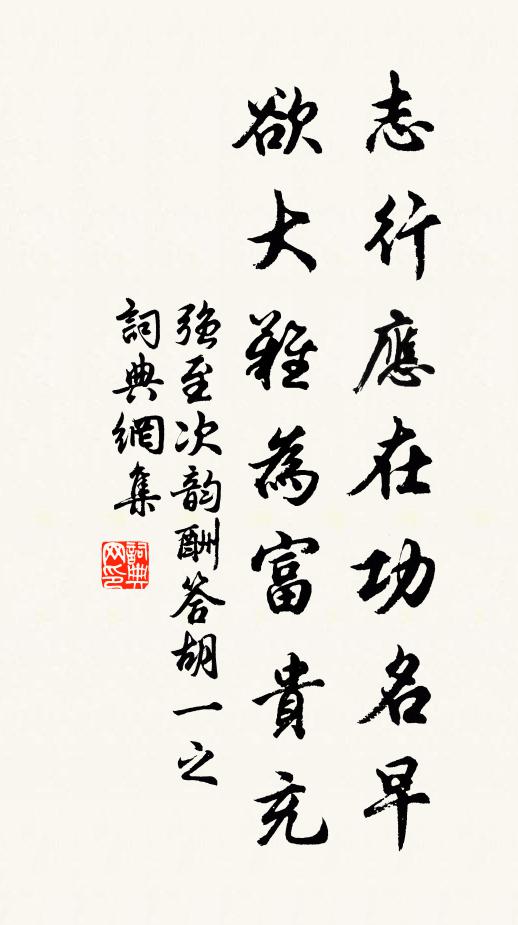 志行應在功名早
欲大難為富貴充
強至次韵酬答胡一之
詞典網集
詞典网印